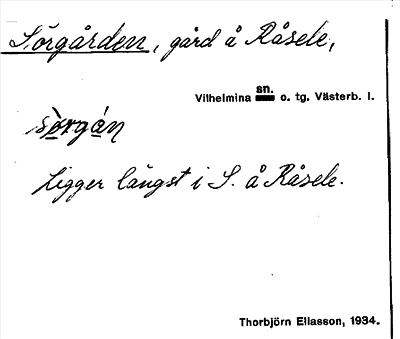 Sörgården, gård å Råsele,
Vilhelmina sn. o. tg. Västerb. l.
sò̀rgán
Ligger längst i S. å Råsele.
Thorbjörn Eliasson, 1934.